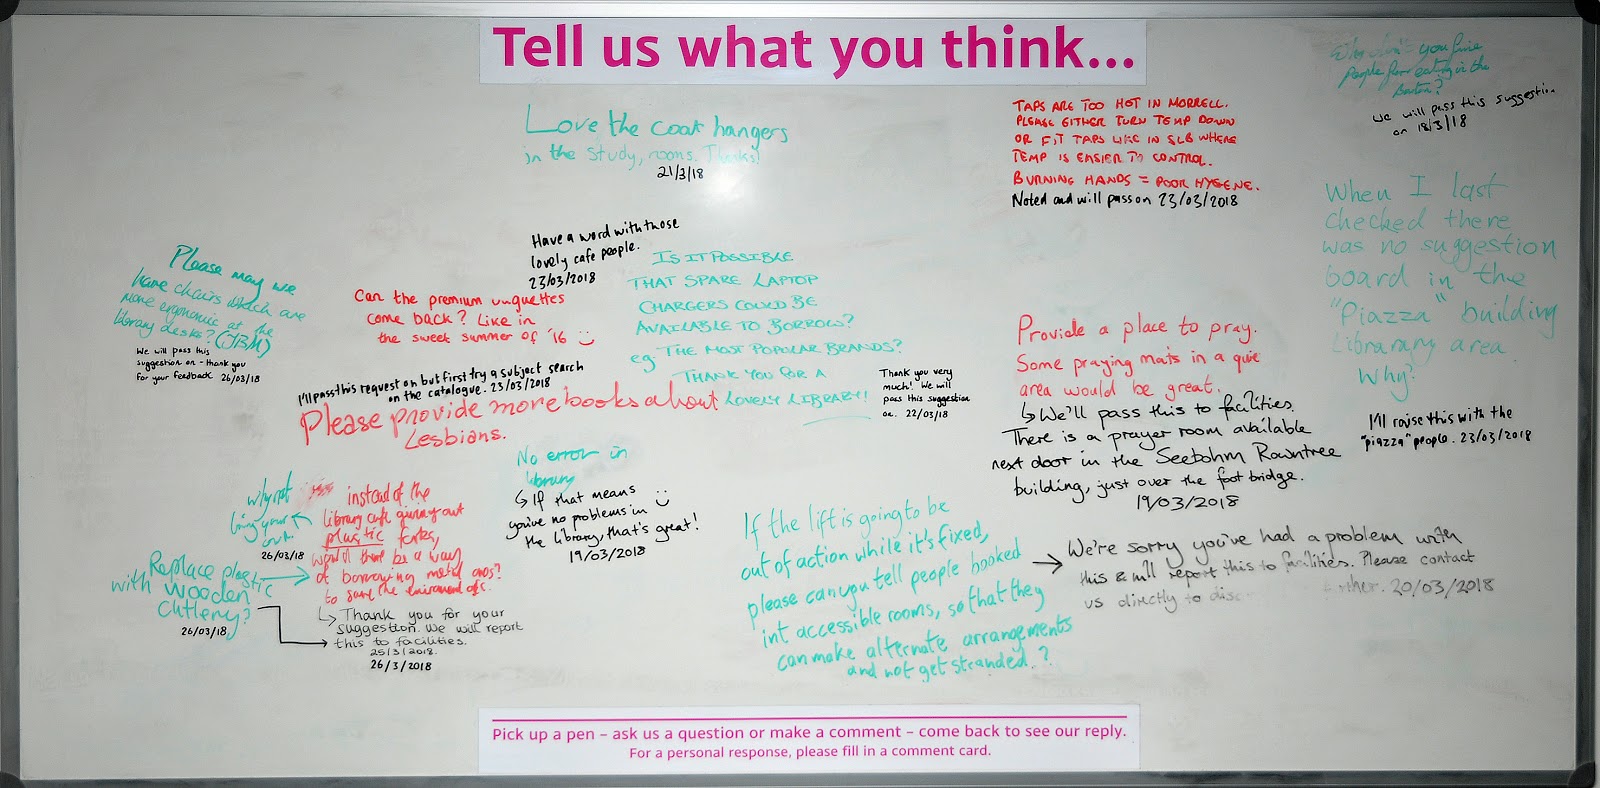 Tell us what you think...
Why don't you fine
people for eating in the
Burton?
We will pass this suggestion
on 18/3/18
Love the coat hangers
in the study, rooms. Thanks!
21/3/18
TAPS ARE TOO HOT IN MORRELL.
PLEASE EITHER TURN TEMP DOWN
OR FIT TAPS LIKE IN SLB WHERE
TEMP IS EASIER TO CONTROL.
BURNING HANDS = POOR HYGENE.
Noted and will pass on 23/03/2018
When I last
checked there
was no suggestion
board in the
"Piazza" building
Librarary area.
Why?
I'll raise this with the
"piazza" people. 23/03/2018
Please may we
have chairs which are
more ergonomic at the
library desks? (JBM)
We will pass this
suggestion on - thank you
for your feedback 26/03/18
Have a word with those
lovely cafe people.
23/03/2018
Can the premium
come back? Like in
the sweet summer of '16 :)
IS IT POSSIBLE
THAT SPARE LAPTOP
CHARGERS COULD BE
AVAILABLE TO BORROW?
eg THE MOST POPULAR BRANDS?
THANK YOU FOR A
LOVELY LIBRARY!
Thank you very
much! We will
pass this suggestion
on. 22/03/18
I'll pass this request on but first try a subject search
on the catalogue. 23/03/2018
Please provide more books about
Lesbians.
Provide a place to pray.
Some praying mats in a quie
area would be great.
↳ We'll pass this to facilities.
There is a prayer room available
next door in the Seebohm Rowntree
building, just over the foot bridge.
19/03/2018
No error in
library
↳ If that means
you've no problems in :)
the library, that's great!
19/03/2018
why not
bring your
own.
26/03/18
instead of the
library café giving out
plastic forks,
would there be a way
of borrowing metal ones?
to save the enviroment etc.
Replace plastic →
with wooden
cutlery?
26/03/18
↳ Thank you for your
suggestion. We will report
this to facilities.
25/3/2018.
26/3/2018
If the lift is going to be
out of action while it's fixed,
please can you tell people booked
int accessible rooms, so that they
can make alternate arrangements
and not get stranded..?
→ We're sorry you've had a problem with
this & will report this to facilities. Please contact
us directly to disc rther. 20/03/2018
Pick up a pen – ask us a question or make a comment – come back to see our reply.
For a personal response, please fill in a comment card.